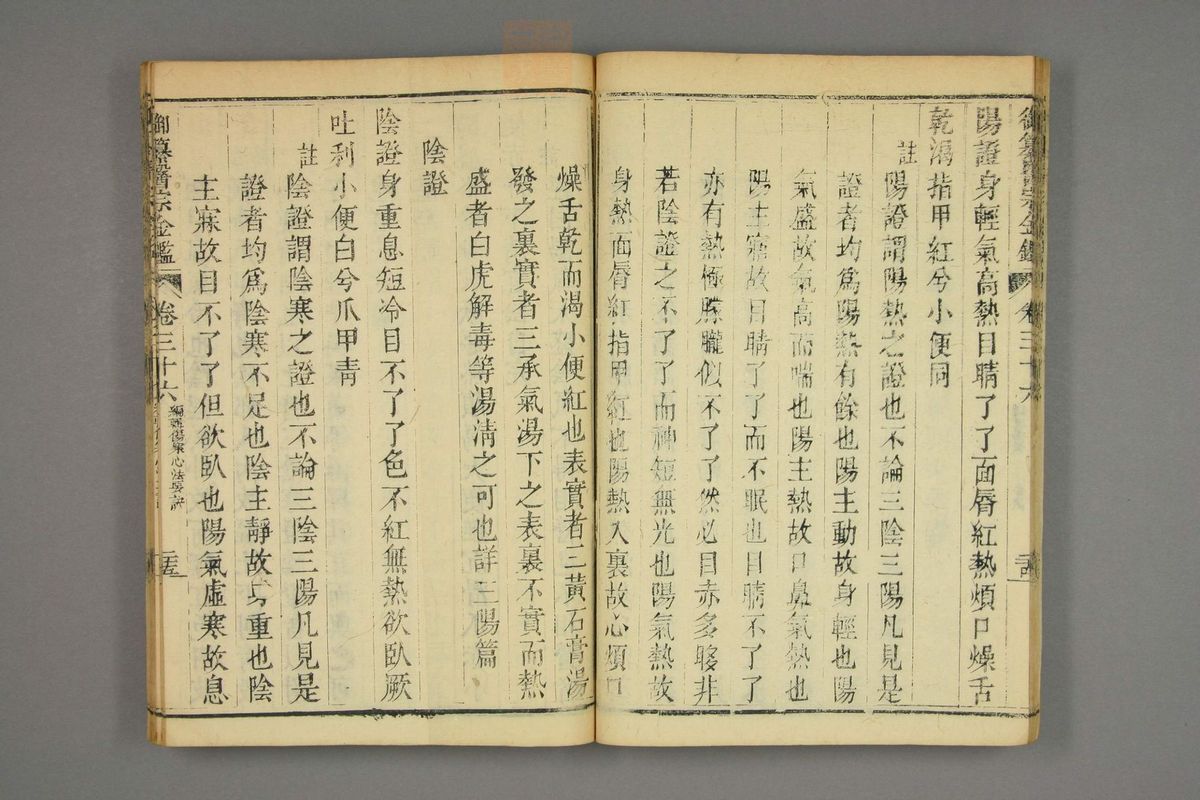 御纂醫宗金鑑 卷三十六
陽證身輕氣高熱目睛了了面唇紅熱煩口燥舌
乾渴指甲紅兮小便同
註
陽證謂陽熱之證也不論三陰三陽凡見是
證者均爲陽熱有餘也陽主動故身輕也陽
氣盛故氣高而喘也陽主熱故口鼻氣熱也
陽主寤故目睛了了而不眠也目睛不了了
亦有熱極朦朧似不了了然必目赤多眵非
若陰證之不了了而神短無光也陽氣熱故
身熱面唇紅指甲紅也陽熱入裏故心煩口
燥舌乾而渴小便紅也表實者三黃石膏湯
發之裏實者三承氣湯下之表裏不實而熱
盛者白虎解毒等湯清之可也詳三陽篇
陰證
陰證身重息短冷目不了了色不紅無熱欲臥厥
吐利小便白兮爪甲青
註
陰證謂陰寒之證也不論三陰三陽凡見是
證者均爲陰寒不足也陰主靜故身重也陰
主寐故目不了了但欲臥也陽氣虛寒故息
御纂醫宗金鑑 卷三十六 編輯傷寒心法要訣